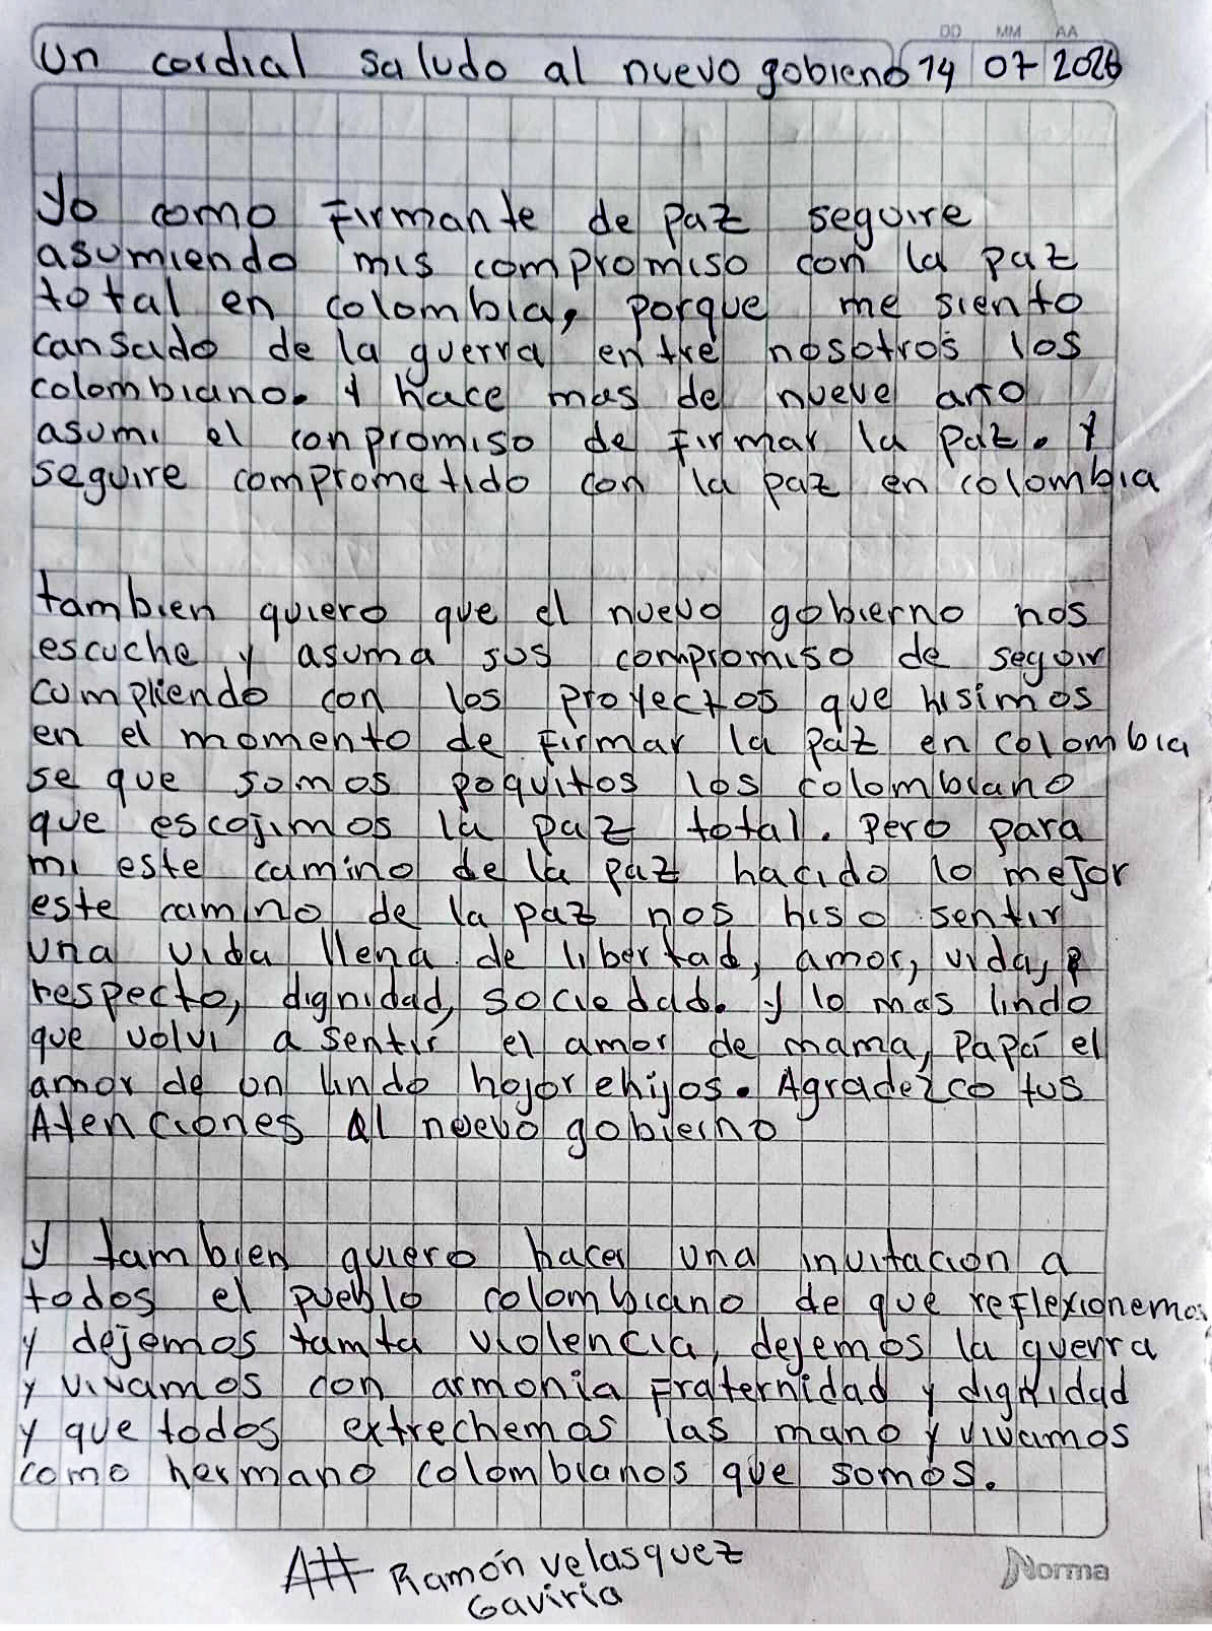 DD MM AA
Un cordial saludo al nuevo gobieno 14 07 2026
Yo como firmante de paz seguire
asumiendo mis compromiso con la paz
total en colombia, porque me siento
cansado de la guerra entre nosotros los
colombiano. Y hace mas de nueve año
asumi el conpromiso de firmar la paz. Y
seguire comprometido con la paz en colombia
tambien quiero que el nuevo gobierno nos
escuche y asuma sus compromiso de seguir
cumpliendo con los proyectos que hisimos
en el momento de firmar la paz en colombia
se que somos poquitos los colombiano
que escojimos la paz total. Pero para
mi este camino de la paz hacido lo mejor
este camino de la paz nos hiso sentir
una vida llena de libertad, amor, vida,
respecto, dignidad, sociedad. y lo mas lindo
que volvi a sentir el amor de mama, Papá el
amor de un lindo hojor ehijos. Agradezco tus
Atenciones Al nuevo gobierno
y tambien quiero hacer una invitacion a
todos el pueblo colombiano de que reflexionemos
y dejemos tamta violencia, dejemos la guerra
y vivamos con armonia Fraternidad y dignidad
y que todos extrechemos las mano y vivamos
como hermano colombianos que somos.
Att Ramón velasquez
Gaviria
Norma